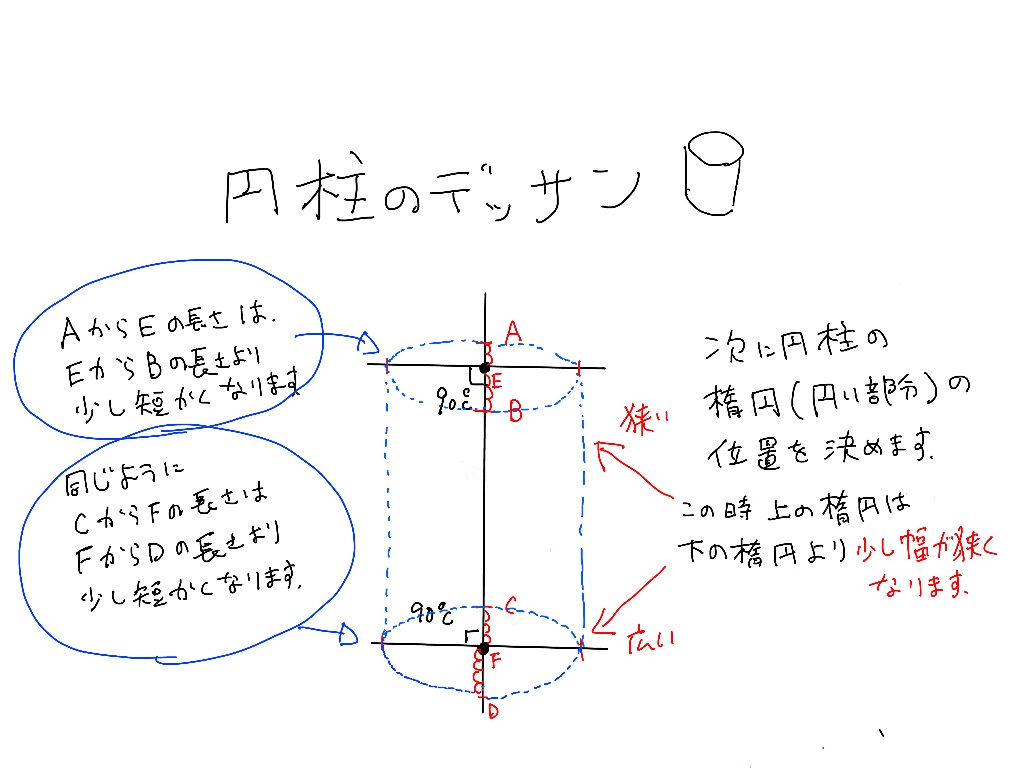 円柱のデッサン
AからEの長さは、
EからBの長さより
少し短かくなります
同じように
CからFの長さは
FからDの長さより
少し短かくなります。
A
E
90℃
B
狭い
次に円柱の
楕円(円い部分)の
位置を決めます。
この時上の楕円は
下の楕円より少し幅が狭く
なります。
90℃
C
F
D
広い